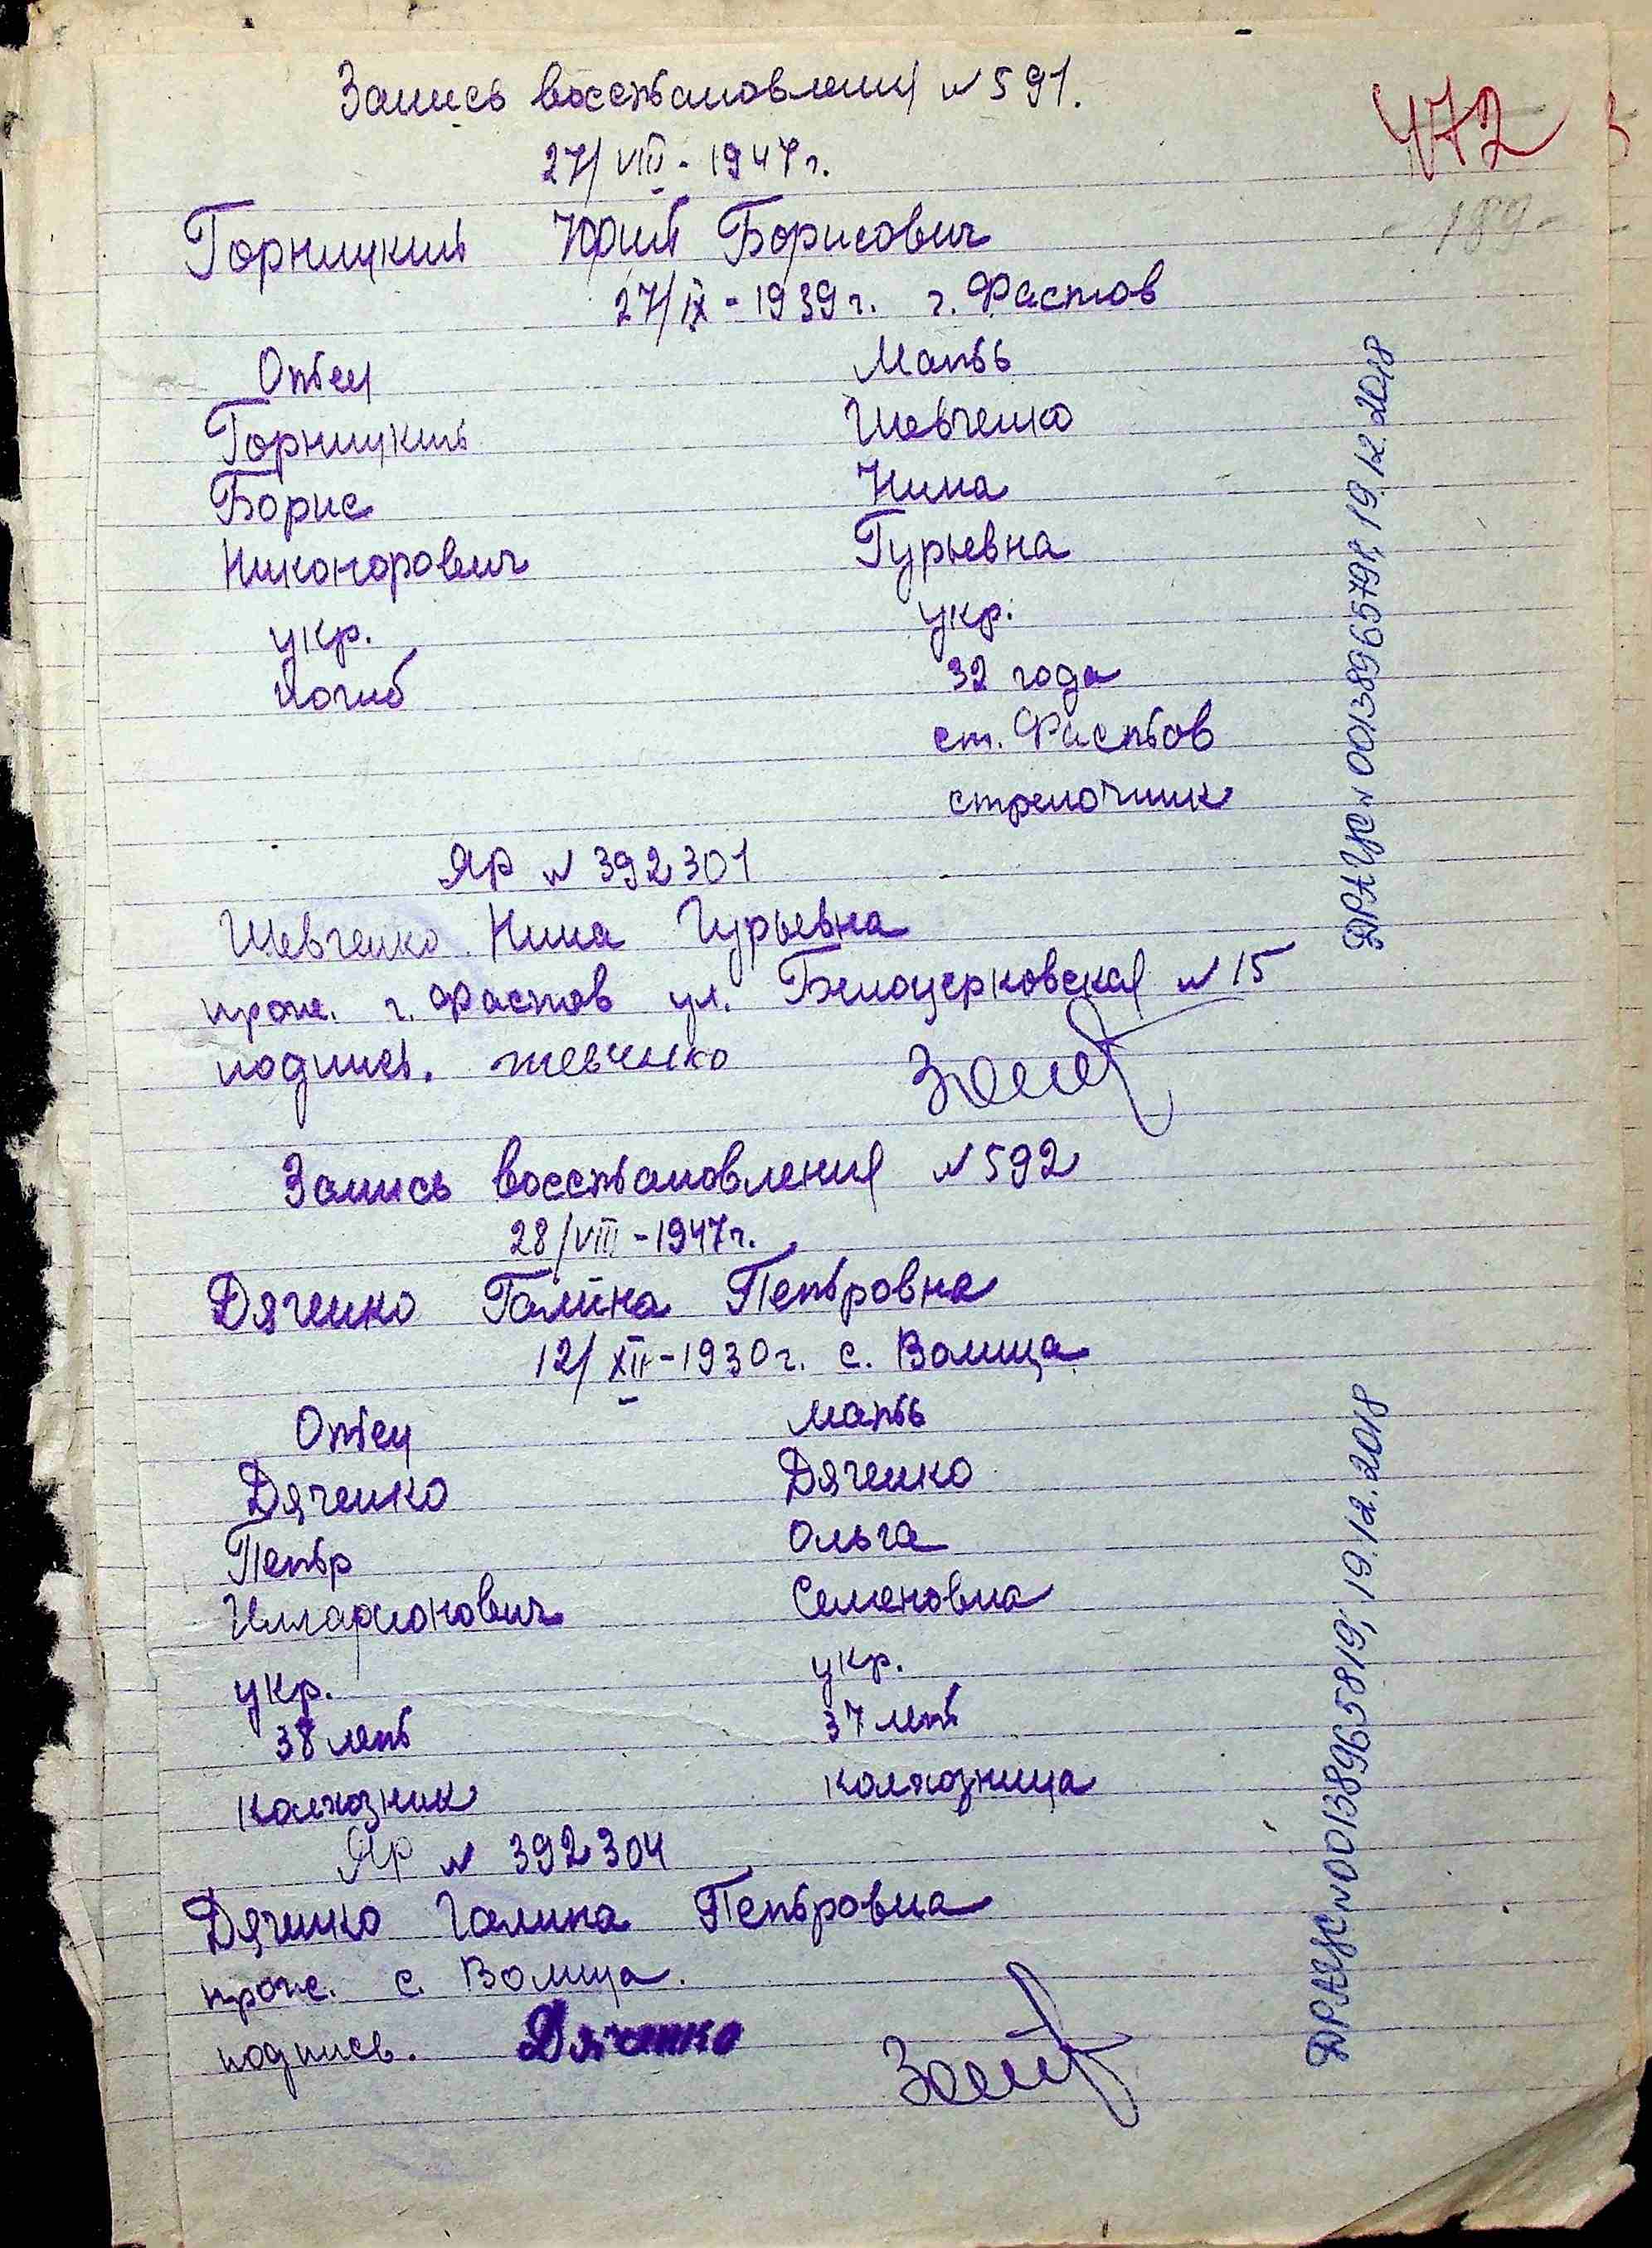 Запись восстановления № 591.
472
27/VIII - 1947 г.
- 189 -
Горницкий Юрий Борисович
27/IX - 1939 г. г. Фастов
Отец Мать
Горницкий Шевченко
Борис Нина
Никонорович Гурьевна
укр. укр.
погиб 32 года
ст. Фастов
стрелочник
ЯР № 392301
Шевченко Нина Гурьевна
прож. г. Фастов ул. Белоцерковская № 15
подпись. шевченко
ДРАЦС № 00138965791, 19.12.2018
Запись восстановления № 592
28/VIII - 1947 г.
Дяченко Галина Петровна
12/XII - 1930 г. с. Волица
Отец Мать
Дяченко Дяченко
Петр Ольга
Илларионович Семеновна
укр. укр.
38 лет 37 лет
колхозник колхозница
ЯР № 392304
Дяченко Галина Петровна
прож. с. Волица.
подпись. Дяченко
ДРАЦС № 00138965819, 19.12.2018